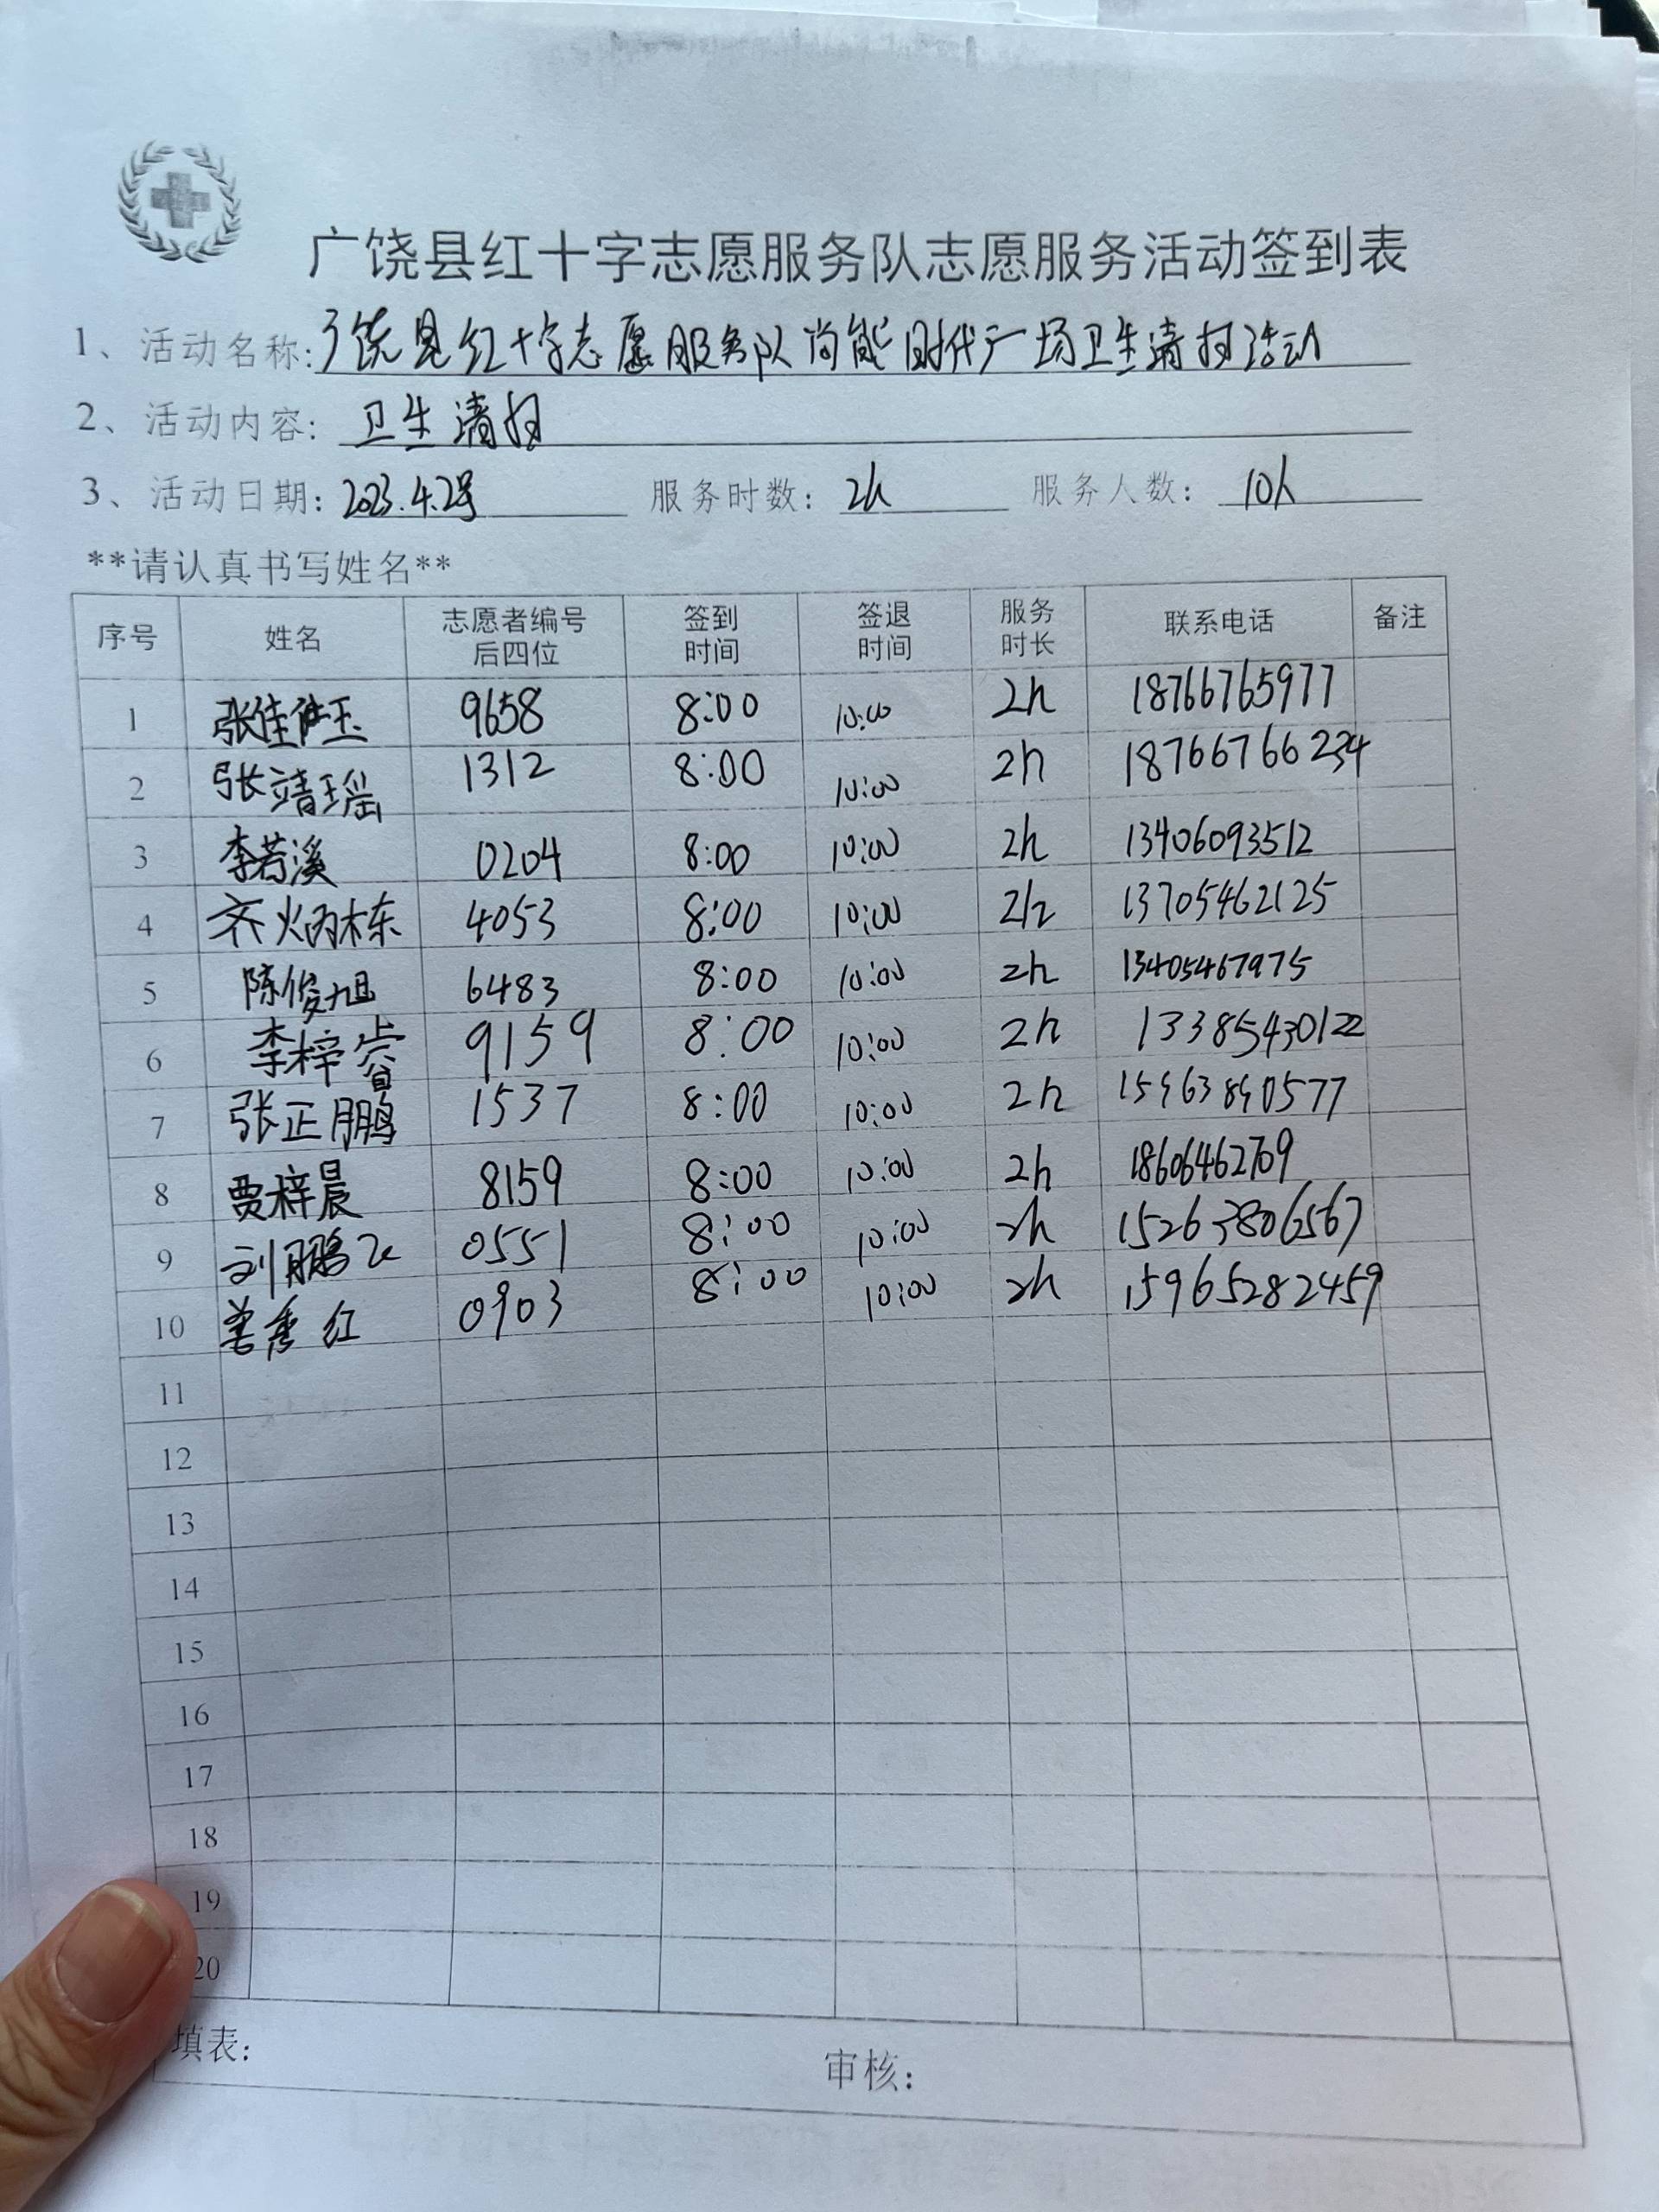 广饶县红十字志愿服务队志愿服务活动签到表
1、活动名称:广饶县红十字志愿服务队尚能时代广场卫生清扫活动
2、活动内容: 卫生清扫
3、活动日期: 2023.4.2号 服务时数: 2h 服务人数: 10人
**请认真书写姓名**
序号 姓名 志愿者编号后四位 签到时间 签退时间 服务时长 联系电话 备注
1 张佳玉 9658 8:00 10:00 2h 18766765977
2 张靖瑶 1312 8:00 10:00 2h 18766766234
3 李若溪 0204 8:00 10:00 2h 13406093512
4 齐炳栋 4053 8:00 10:00 2h 13705462125
5 陈俊旭 6483 8:00 10:00 2h 13405467975
6 李梓睿 9159 8:00 10:00 2h 13385430122
7 张正鹏 1537 8:00 10:00 2h 15963890577
8 贾梓晨 8159 8:00 10:00 2h 18606462709
9 刘鹏飞 0551 8:00 10:00 2h 15263806567
10 姜秀红 0903 8:00 10:00 2h 15965282459
11
12
13
14
15
16
17
18
19
20
填表: 审核: